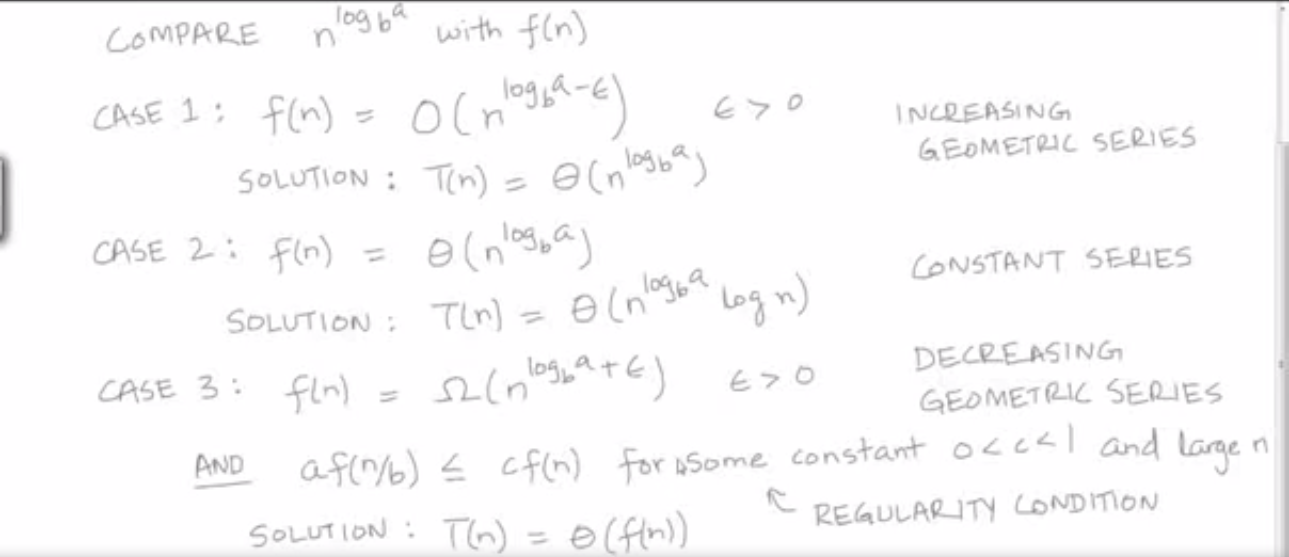 COMPARE n^{log_b a} with f(n)
CASE 1 : f(n) = O(n^{log_b a-ϵ}) ϵ > 0 INCREASING
GEOMETRIC SERIES
SOLUTION : T(n) = Θ(n^{log_b a})
CASE 2 : f(n) = Θ(n^{log_b a}) CONSTANT SERIES
SOLUTION : T(n) = Θ(n^{log_b a} log n)
DECREASING
CASE 3 : f(n) = Ω(n^{log_b a+ϵ}) ϵ > 0 GEOMETRIC SERIES
AND af(n/b) ≤ cf(n) for some constant 0<c<1 and large n
↖ REGULARITY CONDITION
SOLUTION : T(n) = Θ(f(n))